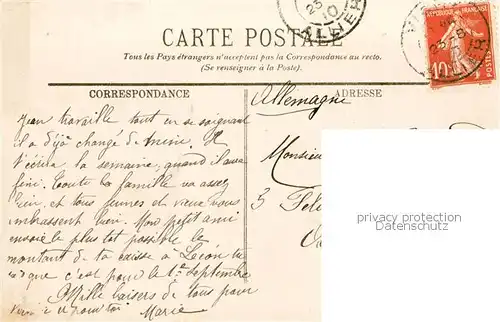 CARTE POSTALE
Tous les Pays étrangers n'acceptent pas la Correspondance au recto.
(Se renseigner à la Poste).
CORRESPONDANCE
ADRESSE
Allemagne
REPUBLIQUE FRANÇAISE
10
ALLIER
Jean travaille tout en se soignant
il a déjà changé de mine. Il
t'écrira la semaine, quand il aura
fini. Toute la famille va assez
bien, et tous jeunes et vieux vous
embrassent bien. Mon petit ami
envoie le plus tôt possible le
montant de la caisse à Léon tu
que c'est pour le 1er Septembre
Mille baisers de tous pour
pour toi Marie
Monsieu
3
privacy protection
Datenschutz